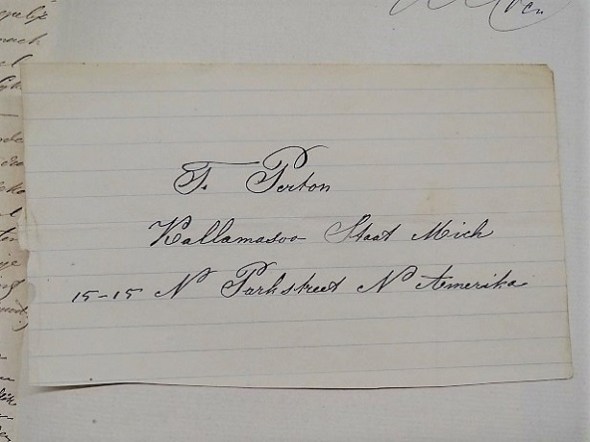 F. Perton
Kallamasoo Staat Mich
15-15 N Parkstreet N Amerika